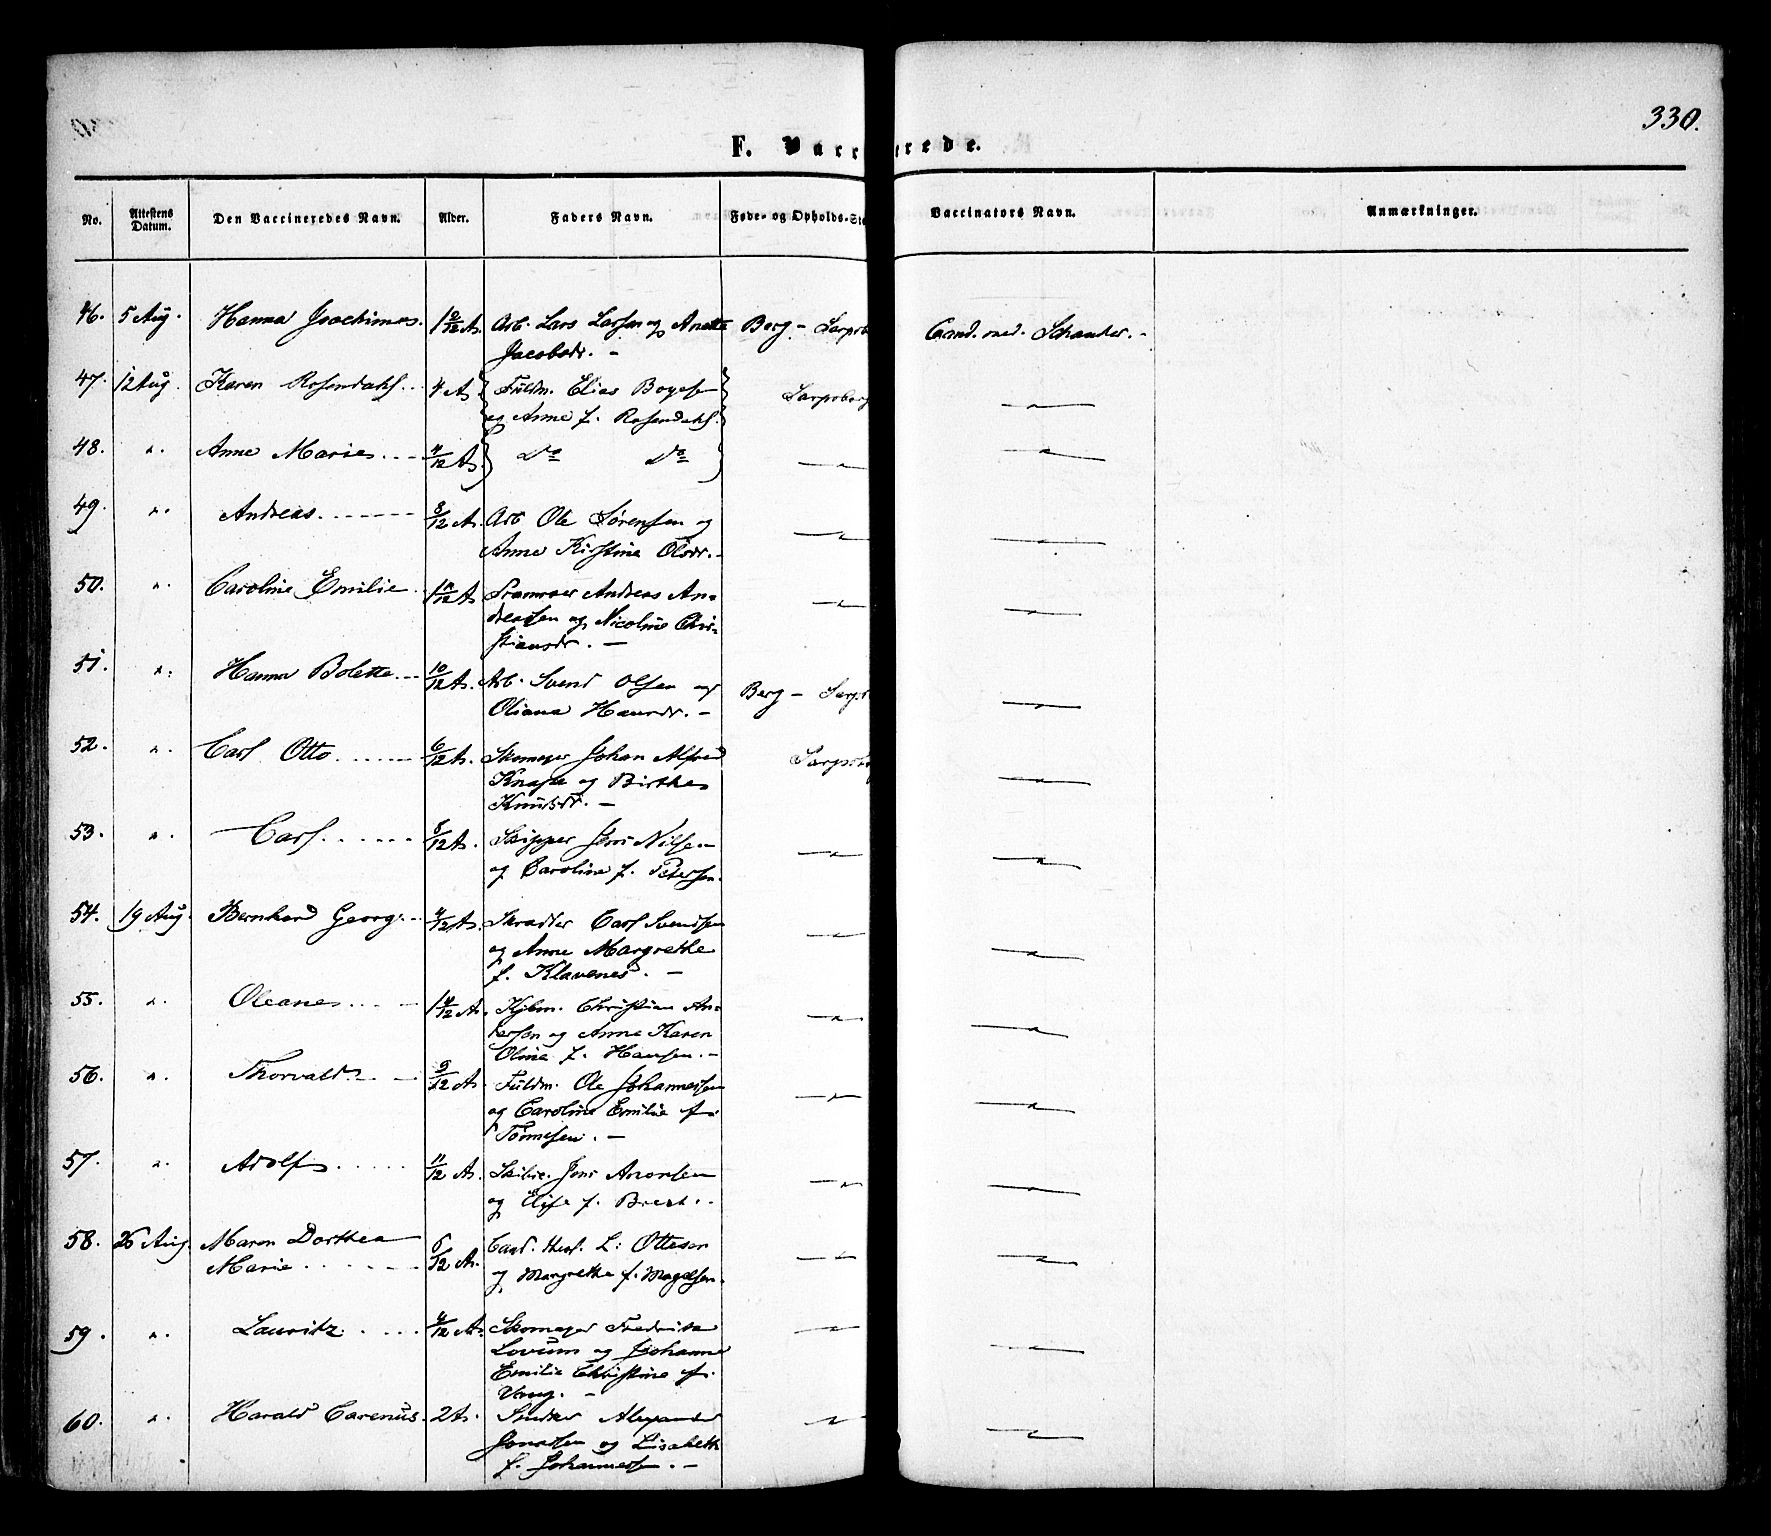 330.
F. Vaccinerede.
No. Attestens Datum. Den Vaccineredes Navn. Alder. Faders Navn. Føde- og Opholds-Ste Vaccinators Navn. Anmærkninger.
46. 5 Aug. Hanna Joachimas. 1 9/12 A. Arb. Lars Larsen og Anette Berg - Sarpsb Cand. med. Schander. -
Jacobsdr. -
47. 12 Aug. Karen Rosendahl. 4 A. Fuldm. Elias Boyesen Sarpsborg — " —
og Anne f. Rosendahl.
48. " Anne Marie. 4/12 A. Do Do — " — — " —
49. " Andreas. 8/12 A. Arb Ole Sørensen og — " — — " —
Anne Kirstine Olsdr. -
50. " Caroline Emilie. 1 11/12 A Andreas An- — " — — " —
dreassen og Nicoline Chri-
stiansdr. -
51. " Hanna Bolette. 10/12 A. Arb. Svend Olsen og Berg - Sarpsb — " —
Oliana Hansdr. -
52. " Carl Otto. 6/12 A. Skomager Johan Alfred Sarpsborg — " —
og Birthe
Knudsdr. -
53. " Carl. 8/12 A. Skipper Jens Nilsen — " — — " —
og Caroline f. Petersen.
54. 19 Aug. Bernhard Georg. 4/12 A. Skrædder Carl Svendsen — " — — " —
og Anne Margrethe
f. Klavenes. -
55. " Oleane. 1 4/12 A. Kjbm. Christian An- — " — — " —
dersen og Anne Karen
Oline f. Hansen. -
56. " Thorvald. 9/12 A. Fuldm. Ole Johannessen — " — — " —
og Caroline Emilie f.
Tønnesen. -
57. " Adolf. 11/12 A. Jens — " — — " —
og Elise f.
58. 26 Aug. Maren Dorthea 5/12 A. Cand. theol. L. Ottesen — " — — " —
Marie. og Margrethe f. Magelsen.
59. " Lauritz. 4/12 A. Skomager Fredrik — " — — " —
Lovum og Johanne
Emilie Christine f.
Vang. -
60. " Harald Carenus. 2 A. Snedker Alexander — " — — " —
Jonassen og Lisabeth
f. Johannessen. -